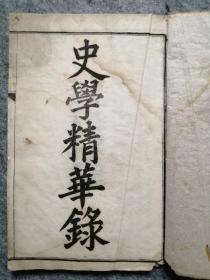 史學精華錄